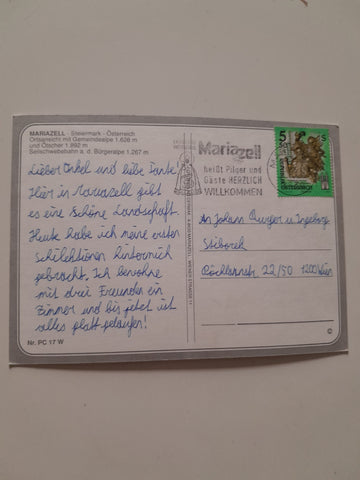 MARIAZELL - Steiermark - Österreich
Ortsansicht mit Gemeindealpe 1.626 m
und Ötscher 1.892 m
Seilschwebebahn a. d. Bürgeralpe 1.267 m
Lieber Onkel und liebe Tante
Hier in Mariazell gibt
es eine schöne Landschaft.
Heute habe ich meine ersten
hinter mich
gebracht. Ich bewohne
mit drei Freunden ein
Zimmer und bis jetzt ist
alles glatt gelaufen!
Nr. PC 17 W
Mariazell
heißt Pilger und
Gäste HERZLICH
WILLKOMMEN
5
An Johann Burger u Ingeborg
22/50 1200 Wien
©